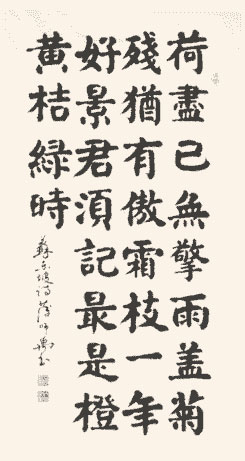 荷盡已無擎雨盖菊
殘猶有傲霜枝一年
好景君湏記最是橙
黄桔緑時
蘇東坡詩